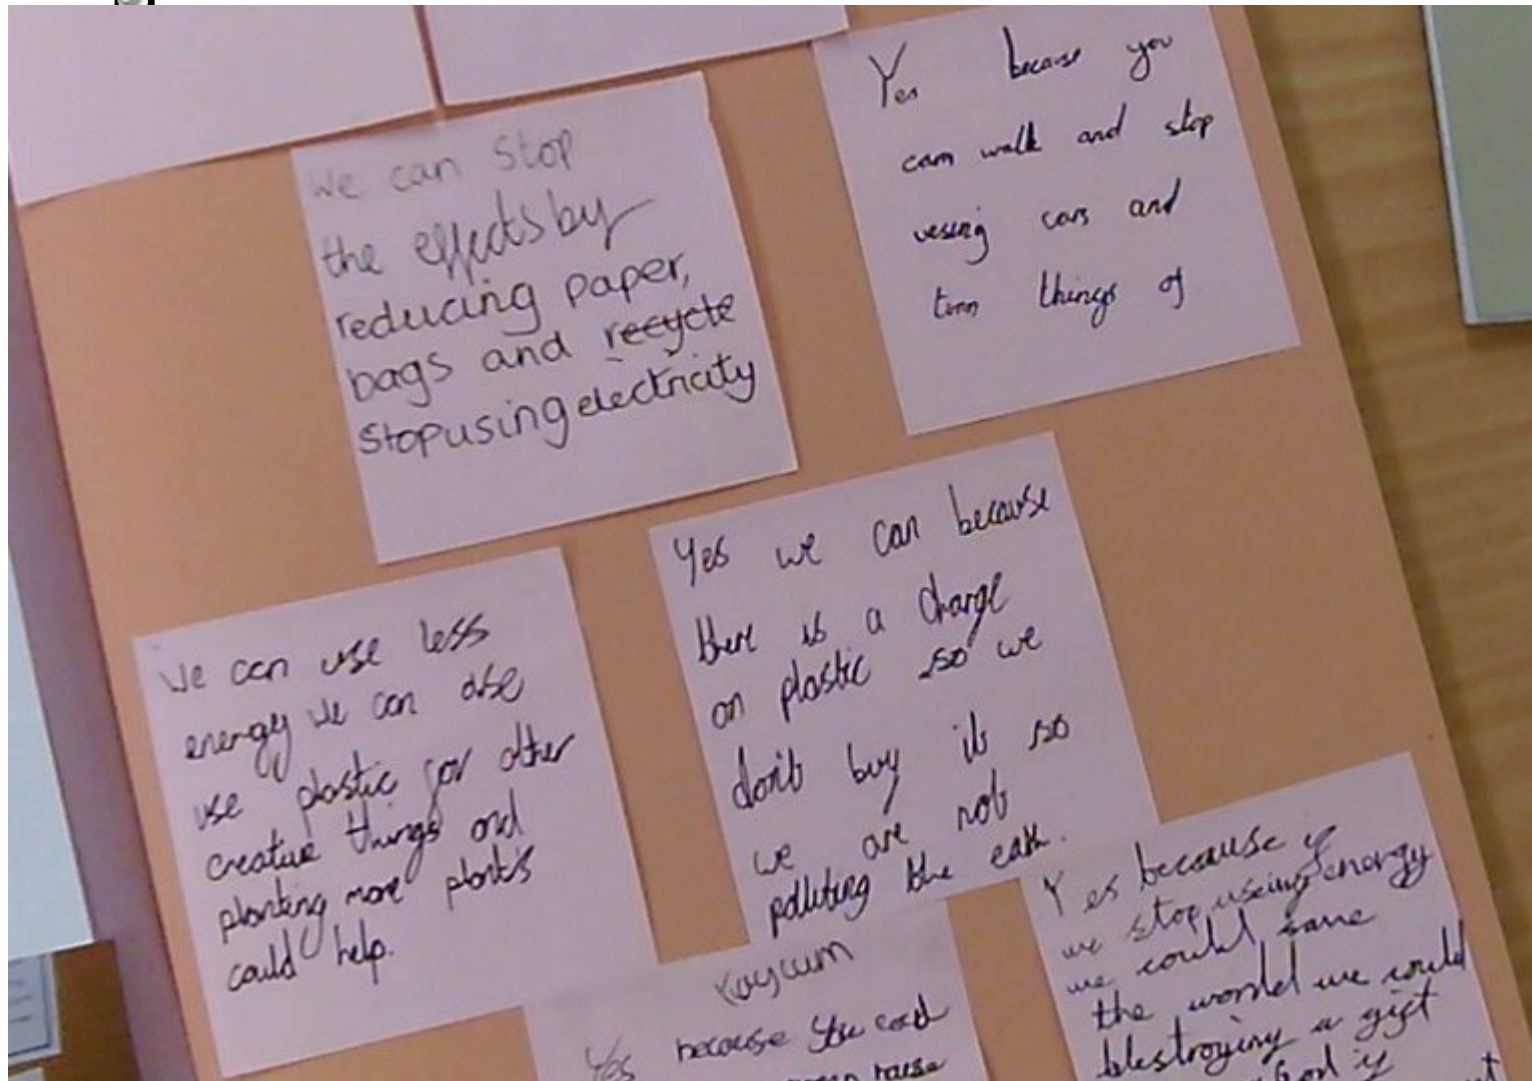 We can stop
the effects by
reducing paper,
bags and recycle
stop using electricity
Yes because you
can walk and stop
useing cars and
turn things of
We can use less
energy we can also
use plastic for other
creative things and
planting more plants
could help.
Yes we can because
there is a charge
on plastic so we
don't buy it so
we are not
polluting the earth.
Yes because you
Yes because if
we stop useing energy
we could save
the world we could
a gift
God if